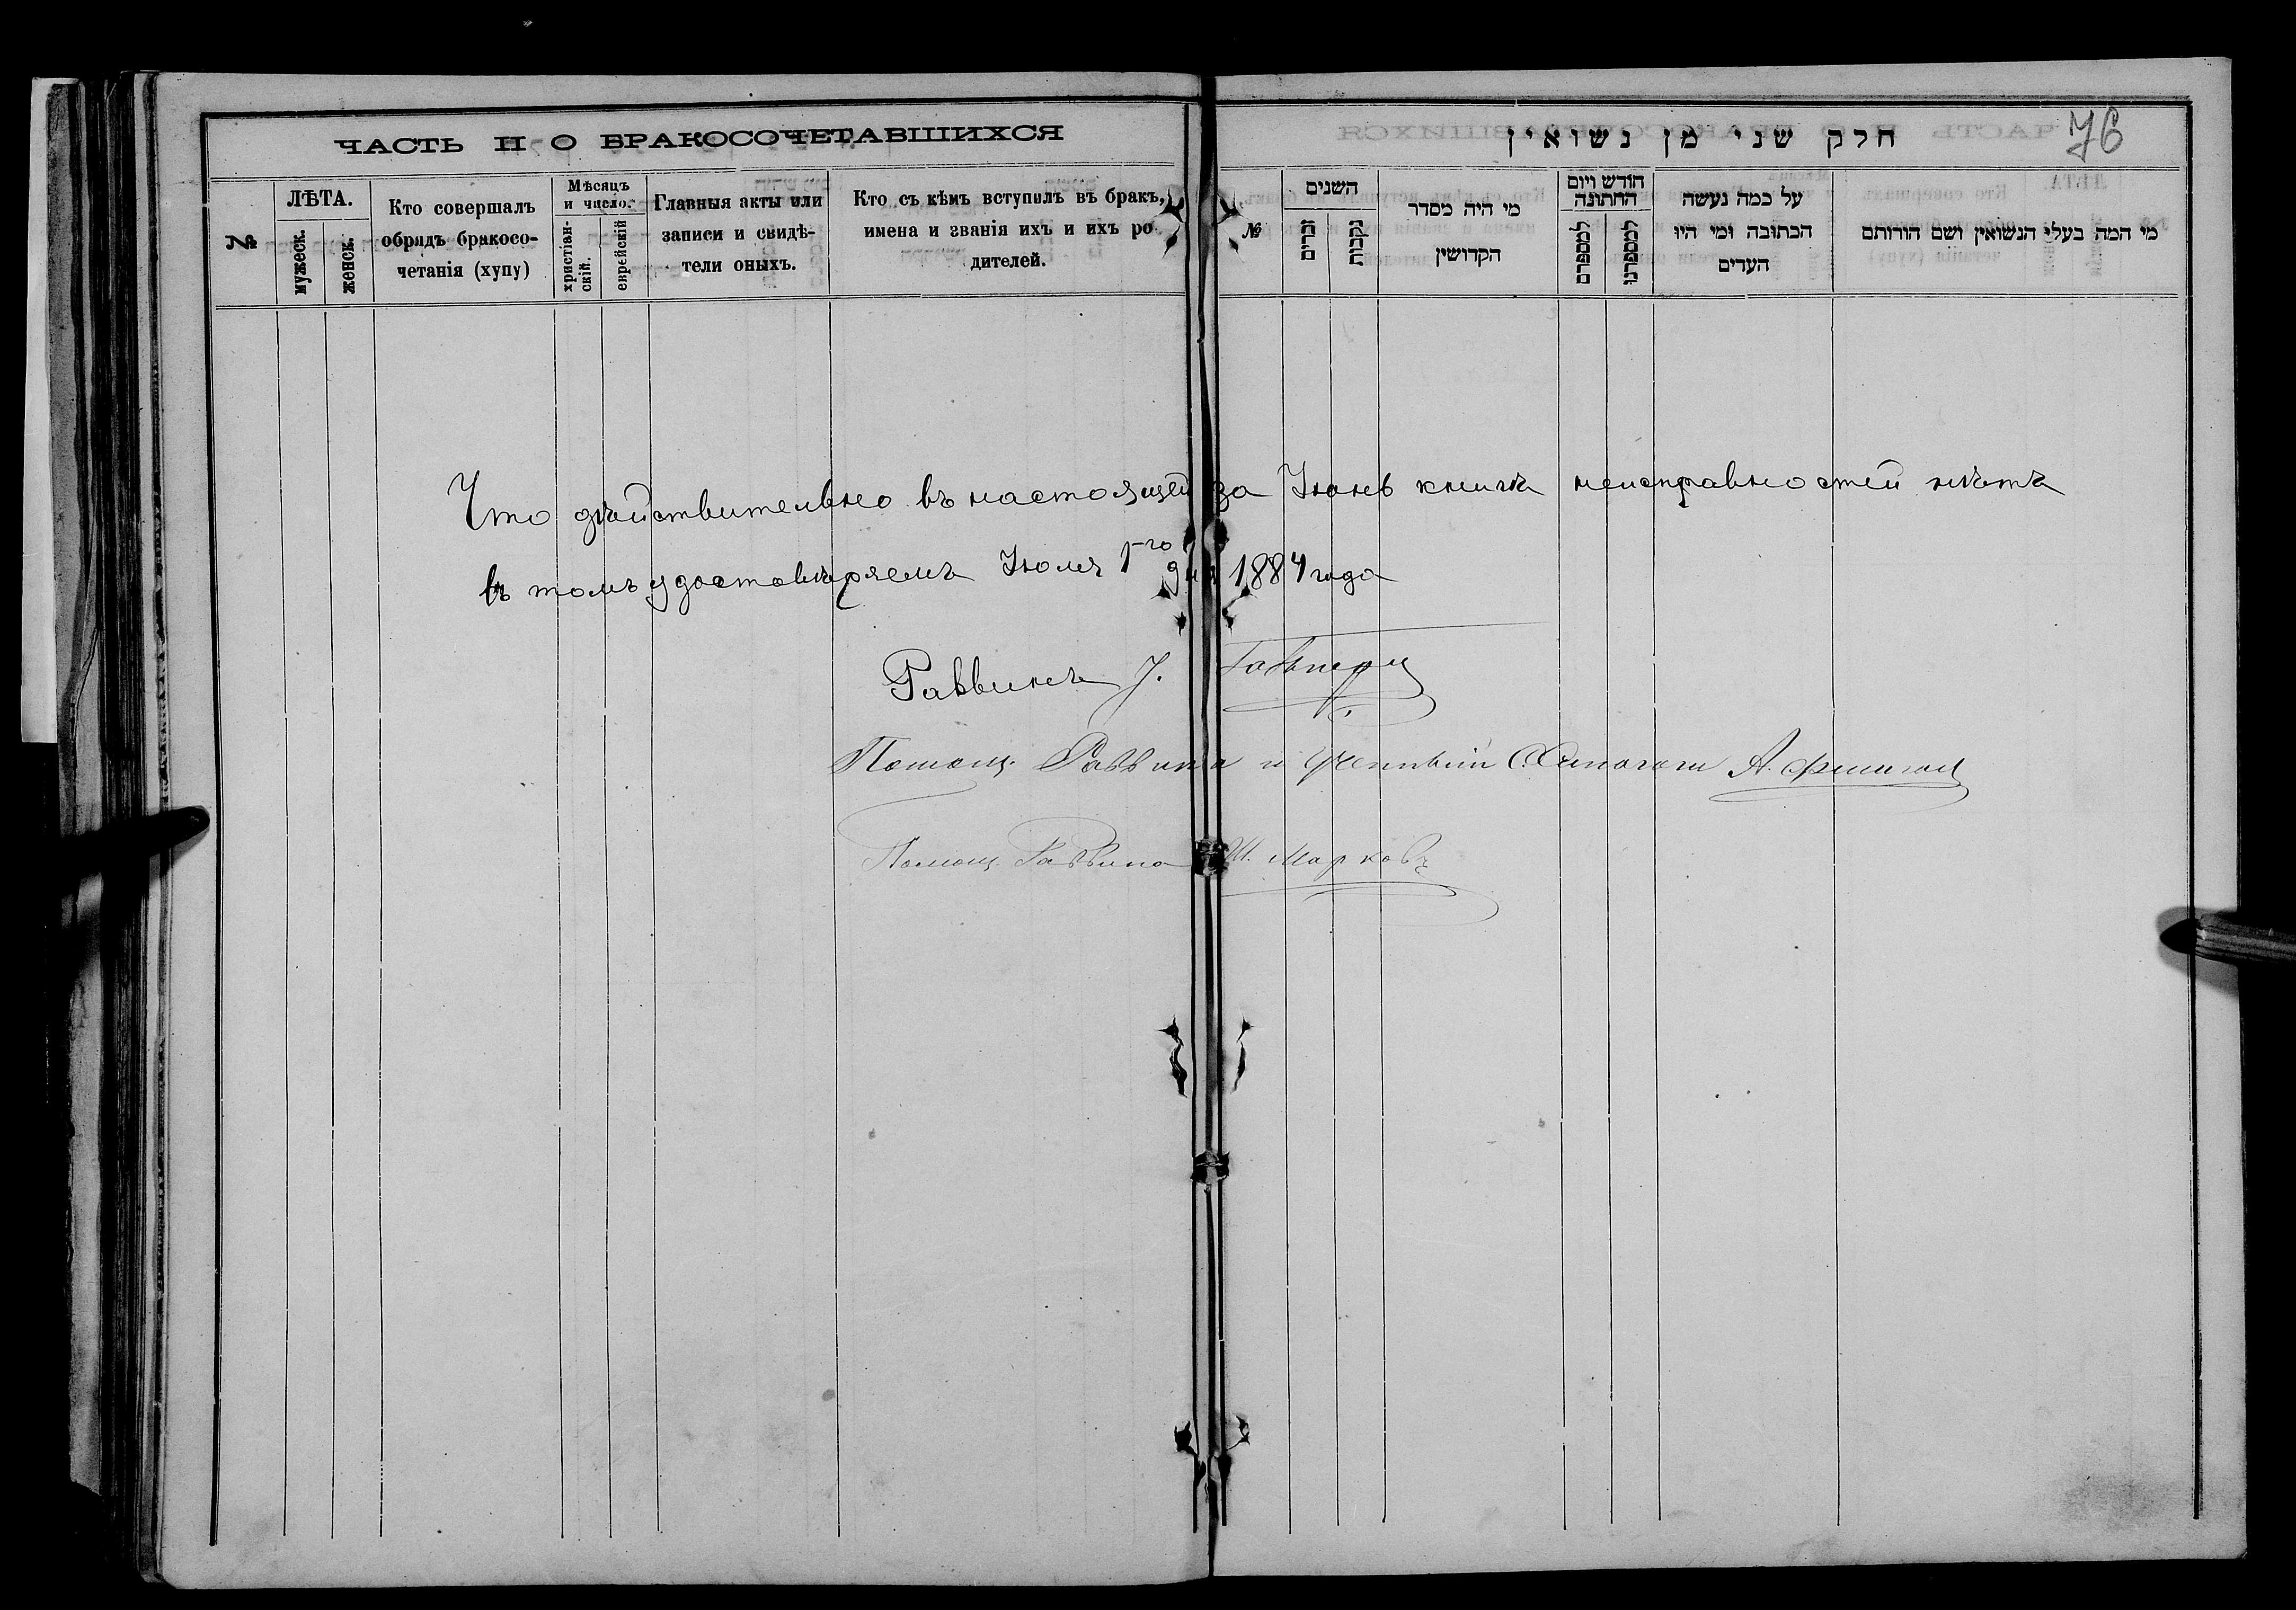 ЧАСТЬ II О БРАКОСОЧЕТАВШИХСЯ
№
ЛѢТА.
мужеск.
женск.
Кто совершалъ
обрядъ бракосо-
четанія (хупу)
Мѣсяцъ
и число.
христіан-
скій.
еврейскій
Главныя акты или
записи и свидѣ-
тели оныхъ.
Кто съ кѣмъ вступилъ въ бракъ,
имена и званія ихъ и ихъ ро-
дителей.
חלק שני מן נשואין
76
№
השנים
זכרים
נקבות
מי היה מסדר
הקדושין
חודש ויום
החתונה
למספרם
למספרנו
על כמה נעשה
הכתובה ומי היו
העדים
מי המה בעלי הנשואין ושם הורותם
Что дѣйствительно въ настоящей за Іюнь книгѣ неисправностей нѣтъ
въ томъ удостовѣряемъ Іюля 1-го дня 1884 года
Раввинъ І.
Помощ. Раввина и Ученный Синагоги А.
Помощ. Раввина Ш. Марковъ